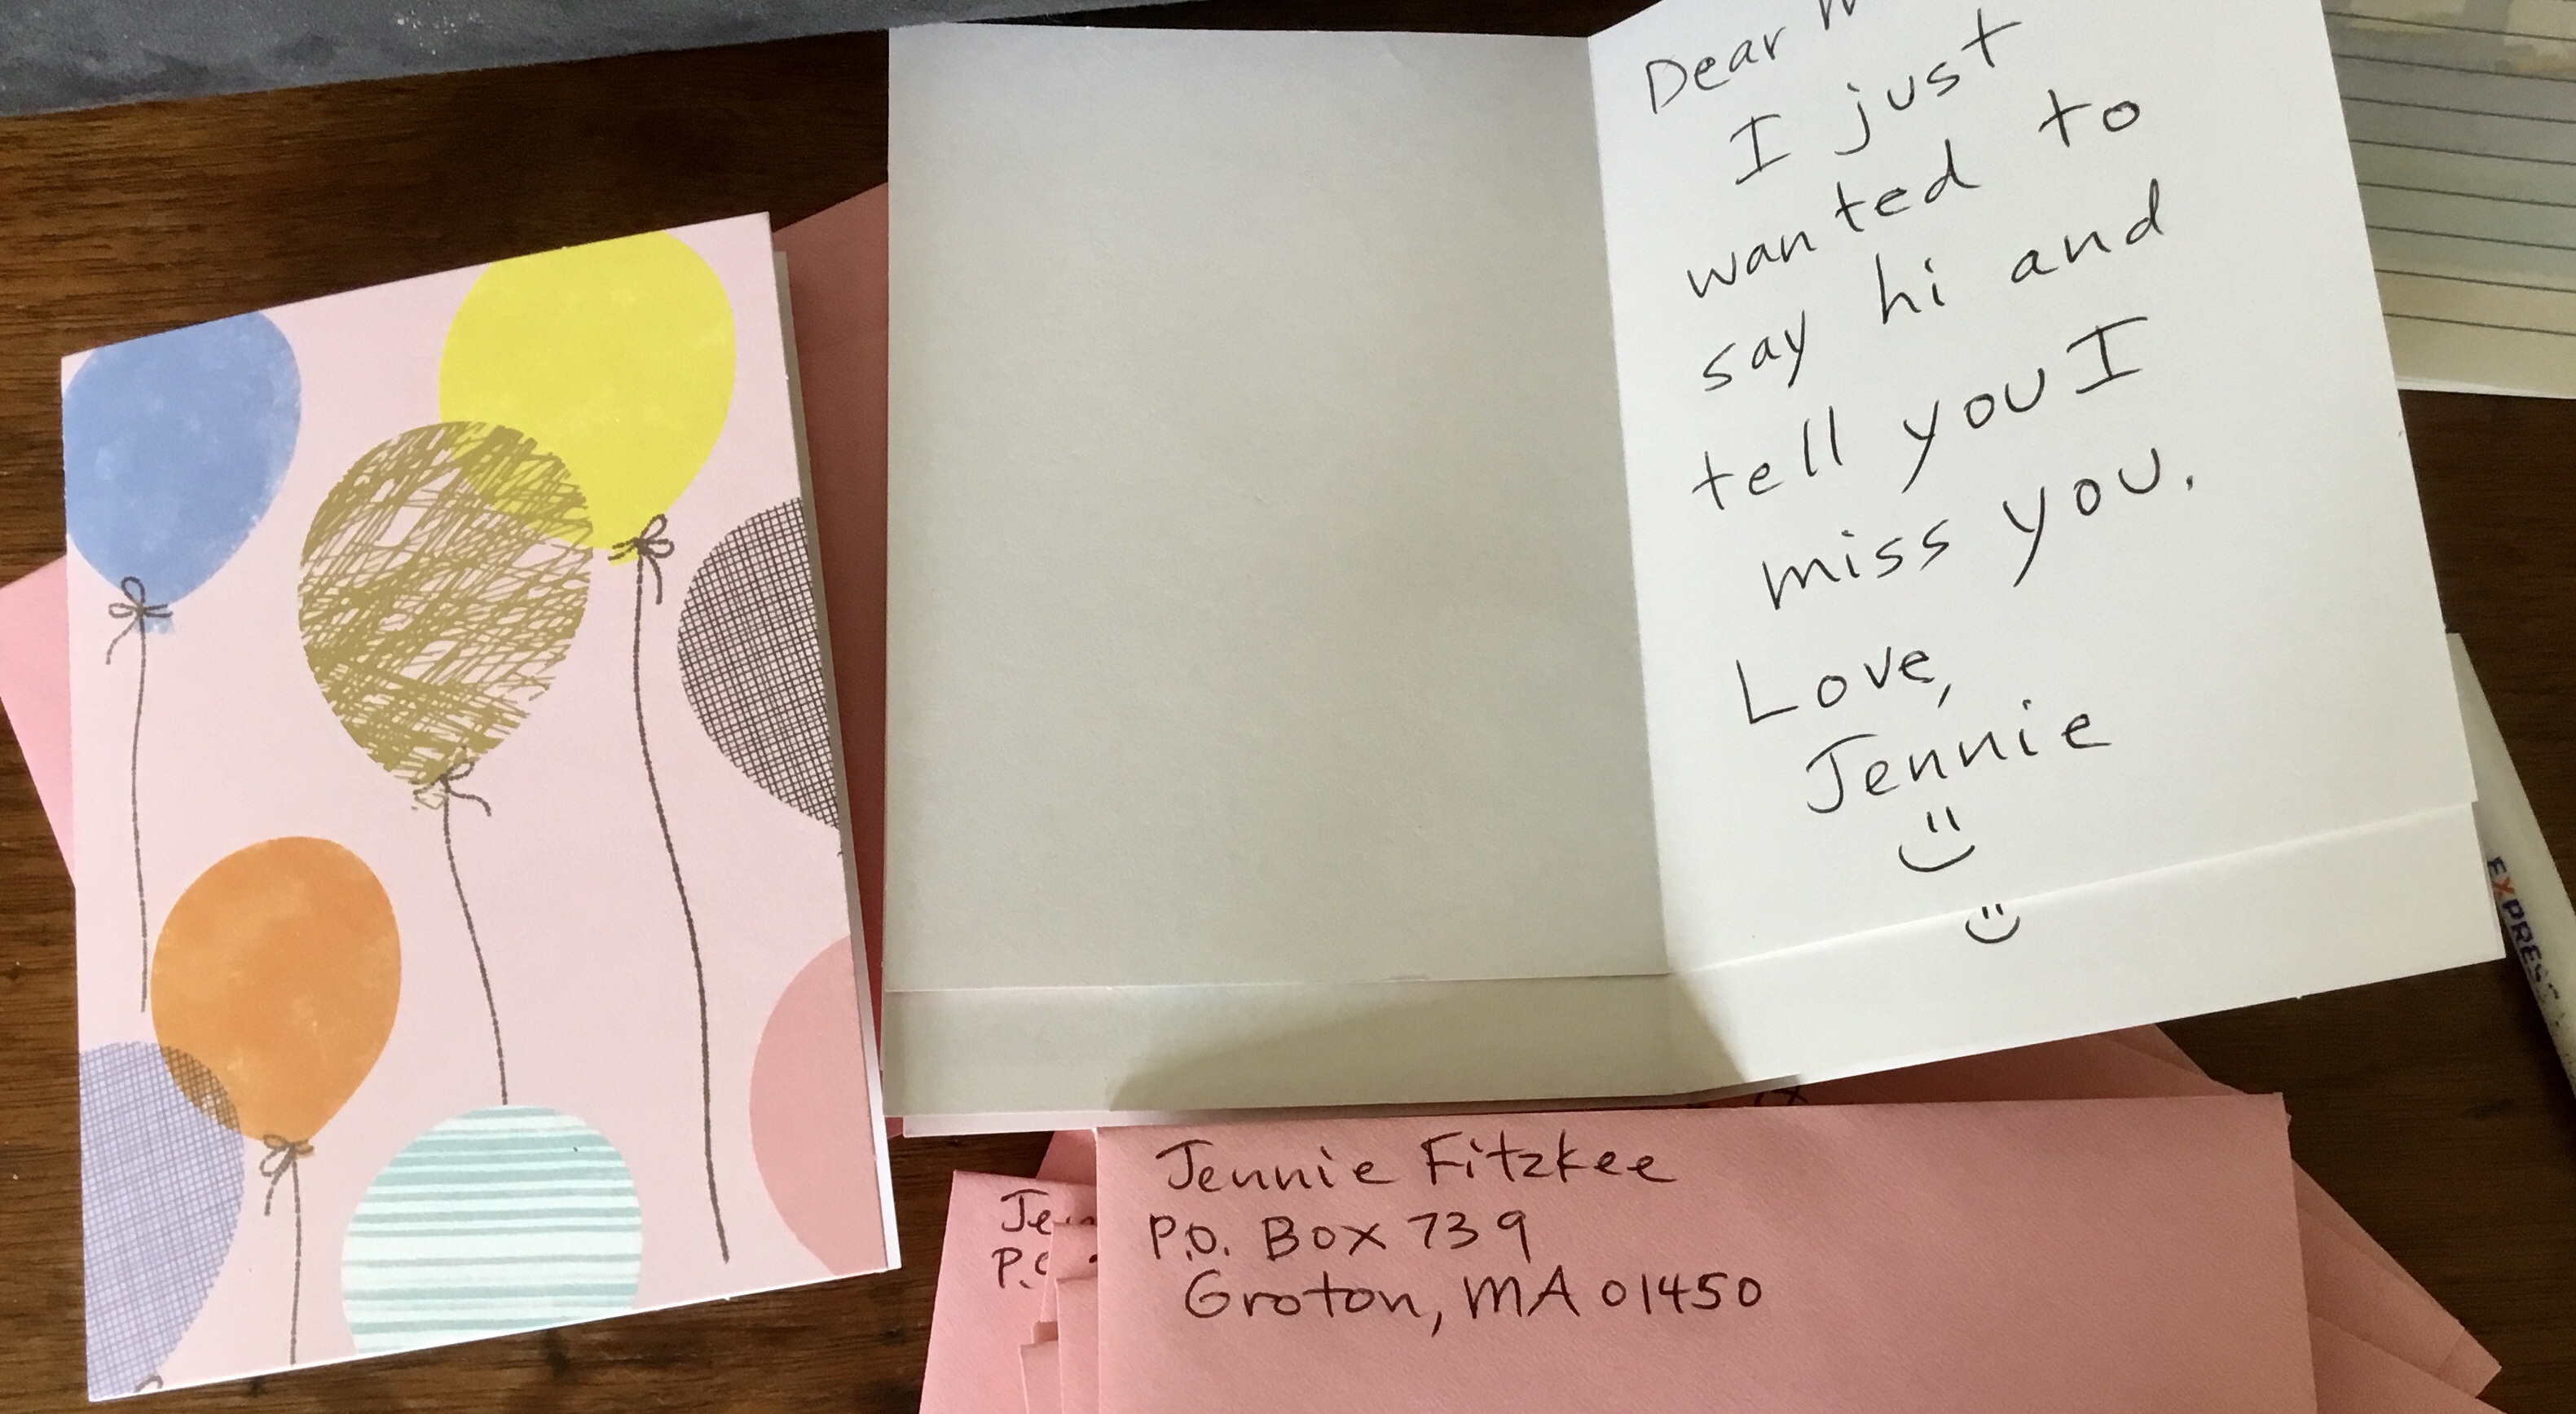 Dear
I just
wanted to
say hi and
tell you I
miss you.
Love,
Jennie
EXPRESS
Jennie Fitzkee
P.O. Box 739
Groton, MA 01450
Je
P.O